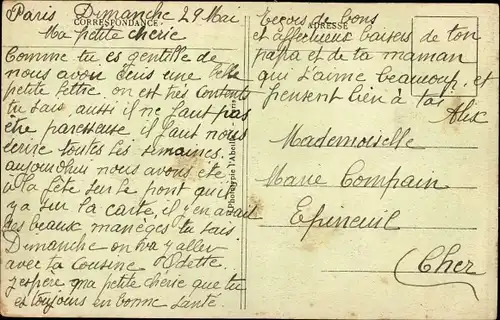 Paris Dimanche 29 Mai
CORRESPONDANCE
Ma petite cherie
Comme tu es gentille de
nous avoir écris une belle
petite lettre on est très contents
tu sais, aussi il ne faut pas
être paresseuse il faut nous
écrire toutes les semaines.
aujourdhui nous avons été
à la fête sur le pont qu'il
y a sur la carte, il y en avait
des beaux manèges tu sais
Dimanche on va y aller
avec ta Cousine Odette
j'espère ma petite cherie que tu
es toujours en bonne santé
Phototypie l'Abeille, Paris
ADRESSE
Reçois de bons
et affectueux baisers de ton
papa et de ta maman
qui t'aime beaucoup et
pensent bien à toi
Alix
Mademoiselle
Marie Compain
Epineuil
Cher